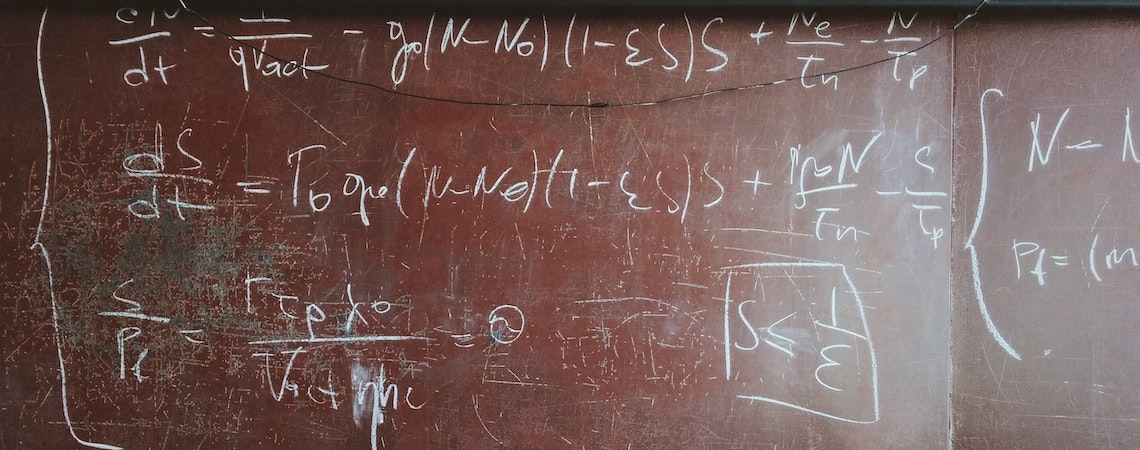 dN/dt = 1/qVact - g₀(N-N₀)(1-εS)S + Ne/τn - N/τp
dS/dt = Γ₀ g₀(N-N₀)(1-εS)S + Γβ₀N/τn - S/τp
S/Pf = Γτpλ₀/Vactηhc =
S ≤ 1/ε
N - N
Pf = (m